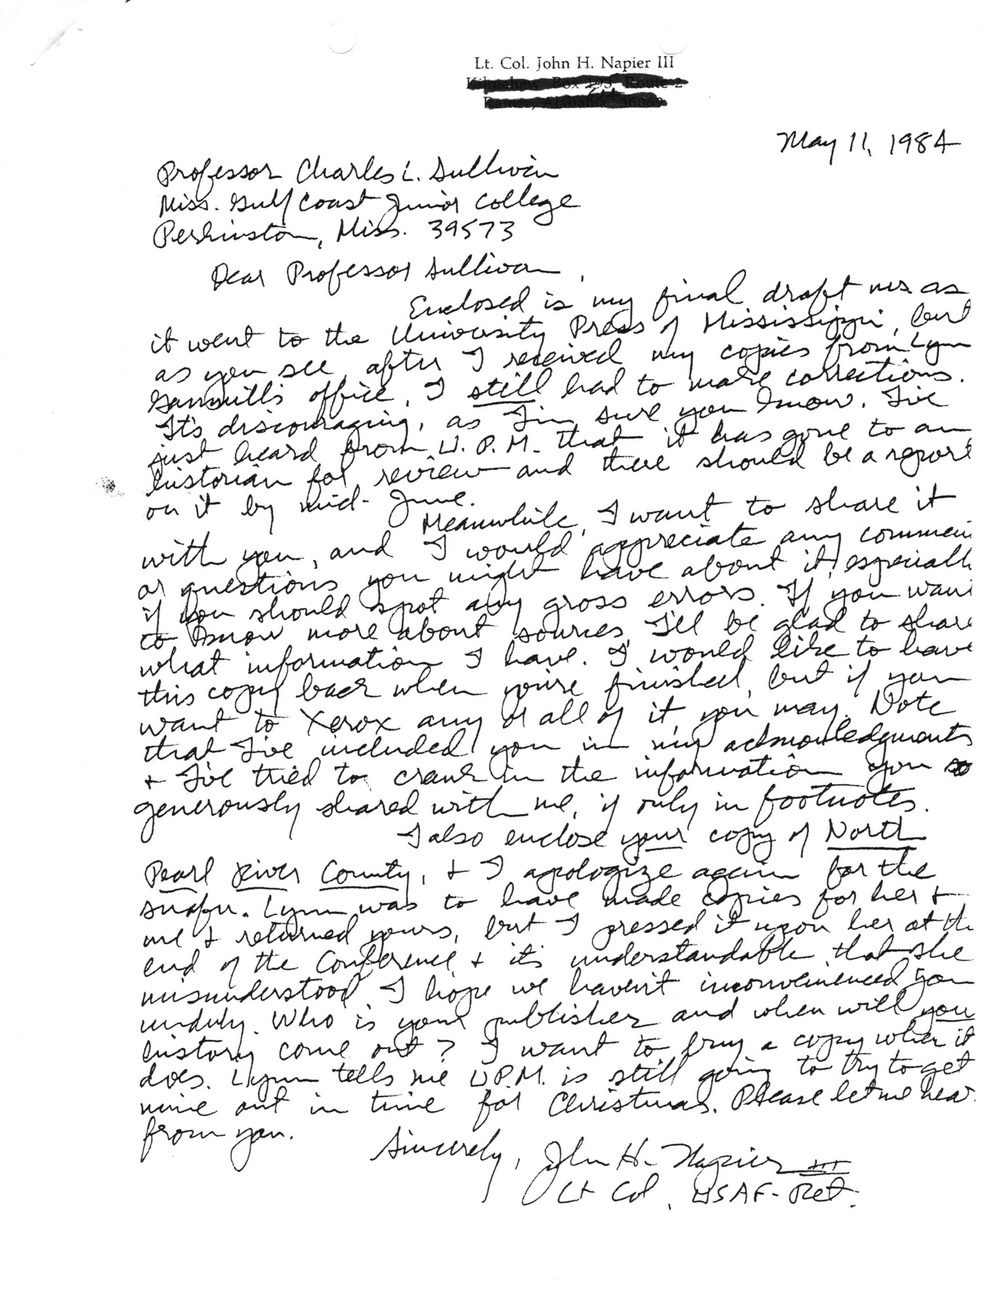 Lt. Col. John H. Napier III
May 11, 1984
Professor Charles L. Sullivan
Miss. Gulf Coast Junior College
Perkinston, Miss. 39573
Dear Professor Sullivan,
Enclosed is my final draft ms as
it went to the University Press of Mississippi, but
as you see, after I received my copies from Lyn
Gammill's office, I still had to make corrections.
It's discouraging, as I'm sure you know. I've
just heard from U.P.M. that it has gone to an
historian for review and there should be a report
on it by mid-June.
Meanwhile, I want to share it
with you, and I would appreciate any commen
or questions you might have about it, especiall
if you should spot any gross errors. If you wan
to know more about sources, I'll be glad to share
what information I have. I would like to have
this copy back when you're finished, but if you
want to Xerox any or all of it, you may. Note
that I've included you in my acknowledgments
& I've tried to crank in the information you so
generously shared with me, if only in footnotes.
I also enclose your copy of North
Pearl River County, & I apologize again for the
snafu. Lynn was to have made copies for her &
me & returned yours, but I pressed it upon her at th
end of the Conference & it's understandable that she
misunderstood. I hope we haven't inconvenienced you
unduly. Who is your publisher and when will you
history come out? I want to buy a copy when it
does. Lynn tells me U.P.M. is still going to try to get
mine out in time for Christmas. Please let me hear
from you.
Sincerely, John H. Napier III
Lt Col, USAF-Ret.